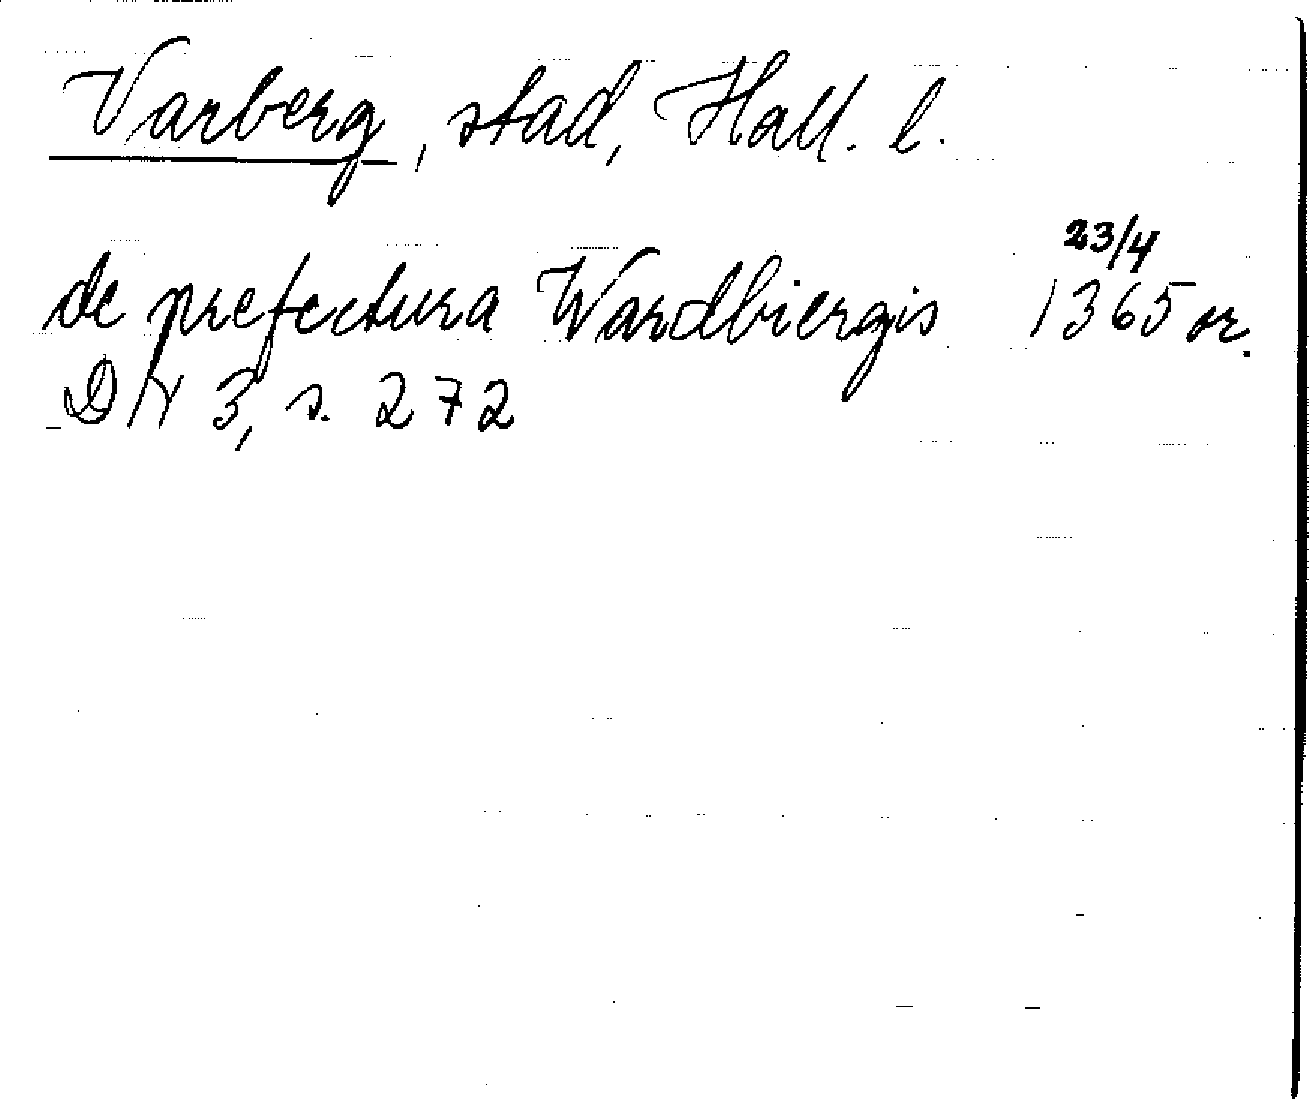 Varberg, stad, Hall. l.
de prefectura Wardbiergis 23/4 1365 or.
DN 3, s. 272